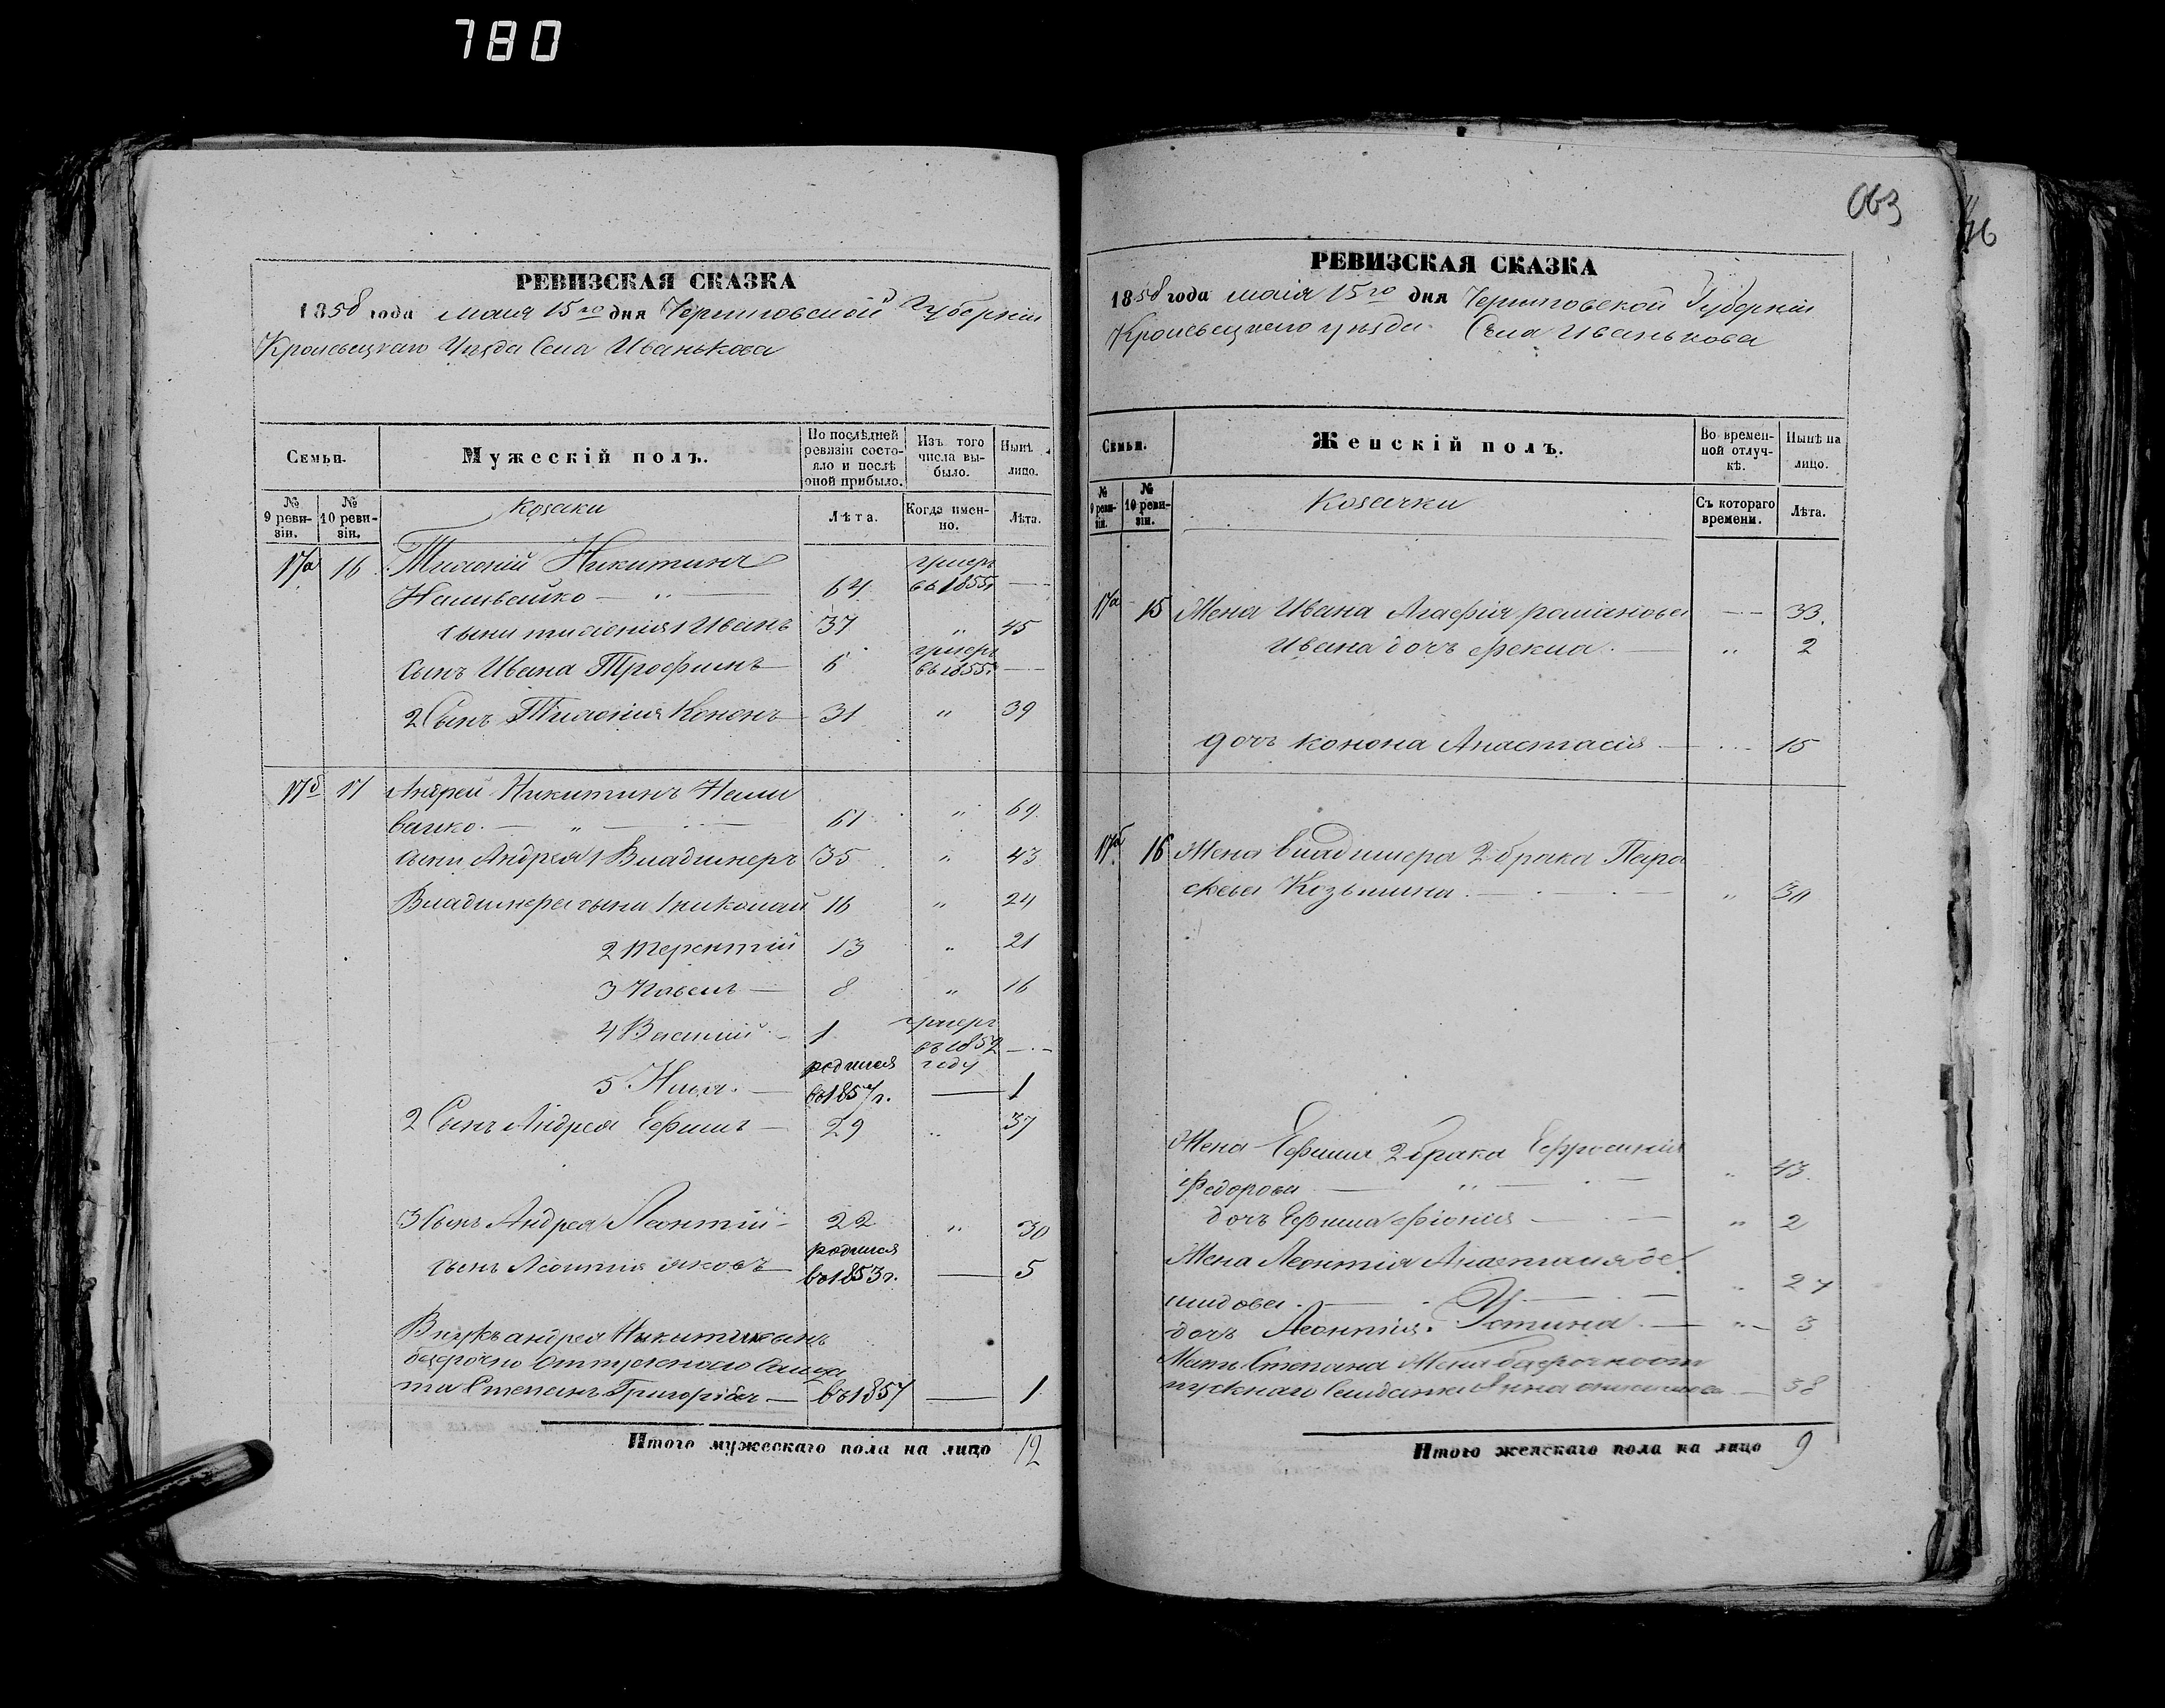 780
РЕВИЗСКАЯ СКАЗКА
1858 года маия 15го дня Черниговской Губерніи
Кролевецкаго Уѣзда Села Иванькова
Семьи.
Мужескій полъ.
По послѣдней ревизіи состояло и послѣ оной прибыло.
Изъ того числа выбыло.
Нынѣ лицо.
№ 9 ревизіи.
№ 10 ревизіи.
Козаки
Лѣта.
Когда именно.
Лѣта.
17а 16 Никитинъ умеръ
Наливайко — " — 64 въ 1855г —
сыны 1 Иванъ 37 " 45
умеръ
сынъ Ивана Трофимъ 6 въ 1855г —
2 Сынъ Кононъ 31 " 39
17б 17 Андрей Никитинъ Нали
вайко — " — 61 " 69
сыны Андрея 1 Владимеръ 35 " 43
Владимера сыны 1 николай 16 " 24
2 терентій 13 " 21
3 Павелъ — 8 " 16
4 Василий — 1 умеръ
въ 1852 —
родился году
5 Илья. — въ 1857 г. — 1
2 Сынъ Андрея Ефимъ — 29 " 37
3 Сынъ Андрея Леонтій — 22 " 30
родился
сынъ Леонтія яковъ — въ 1853 г. — 5
Внукъ андрея Никитина сынъ
безсрочно отпускнаго Солда
та Степанъ Григоріевъ — въ 1857 — 1
Итого мужескаго пола на лицо 12
063
46
РЕВИЗСКАЯ СКАЗКА
1858 года маія 15го дня Черниговской Губерніи
Кролевецкаго уѣзда Села Иванькова
Семьи.
Женскій полъ.
Во временной отлучкѣ.
Нынѣ на лицо.
№ 9 ревизіи.
№ 10 ревизіи.
Козачки
Съ котораго времени.
Лѣта.
17а 15 Жена Ивана Агафія романова — 33.
Ивана дочь Фекла. — " 2
дочь конона Анастасія — 15
17б 16 Жена владимера 2 брака Пара
скева Козьмина. — " 30
Жена Ефима 2 брака Ефросинія
Федорова — " — " 43
дочь Ефима — " 2
Жена Леонтія Анастасия де
мидова. — " 27
дочь Леонтія. Устина. — " 3
Мать Степана Жена безсрочноот
пускнаго Солдата Анна — 38
Итого женскаго пола на лицо 9